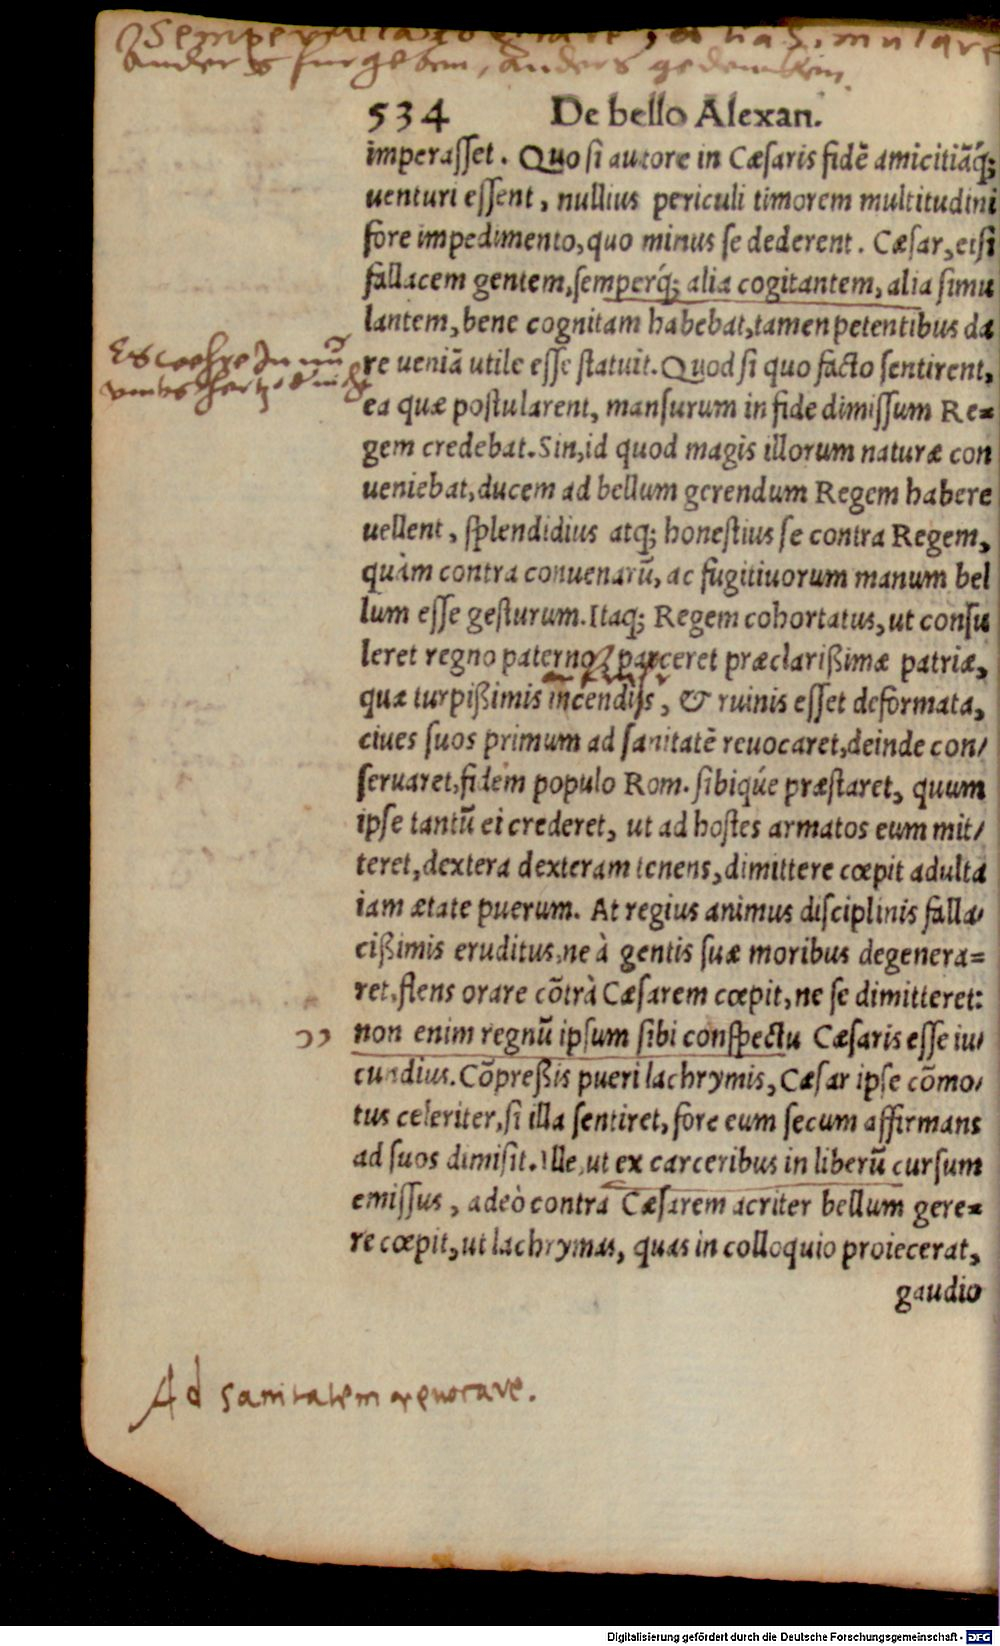 Semper alia cogitare, alia simulare
anders furgeben, anders gedencken.
534 De bello Alexan.
imperasset. Quo si autore in Cæsaris fidẽ amicitiãq́;
uenturi essent, nullius periculi timorem multitudini
fore impedimento, quo minus se dederent. Cæsar, etsi
fallacem gentem, semperq́; alia cogitantem, alia simu
lantem, bene cognitam habebat, tamen petentibus da
re ueniã utile esse statuit. Quod si quo facto sentirent,
ea quæ postularent, mansurum in fide dimissum Re=
gem credebat. Sin, id quod magis illorum naturæ con
ueniebat, ducem ad bellum gerendum Regem habere
uellent, splendidius atq; honestius se contra Regem,
quàm contra conuenarũ, ac fugitiuorum manum bel
lum esse gesturum. Itaq; Regem cohortatus, ut consu
leret regno paterno, parceret præclarißimæ patriæ,
quæ turpißimis incendijs, & ruinis esset deformata,
ciues suos primum ad sanitatẽ reuocaret, deinde con/
seruaret, fidem populo Rom. sibiq́ue præstaret, quum
ipse tantũ ei crederet, ut ad hostes armatos eum mit/
teret, dextera dexteram tenens, dimittere cœpit adulta
iam ætate puerum. At regius animus disciplinis falla/
cißimis eruditus, ne à gentis suæ moribus degenera=
ret, flens orare cõtrà Cæsarem cœpit, ne se dimitteret:
non enim regnũ ipsum sibi conspectu Cæsaris esse iu/
cundius. Cõpreßis pueri lachrymis, Cæsar ipse cõmo/
tus celeriter, si illa sentiret, fore eum secum affirmans
ad suos dimisit. Ille, ut ex carceribus in liberũ cursum
emissus, adeò contra Cæsarem acriter bellum gere=
re cœpit, ut lachrymas, quas in colloquio proiecerat,
gaudio
Ad sanitatem reuocare.
Digitalisierung gefördert durch die Deutsche Forschungsgemeinschaft - DFG